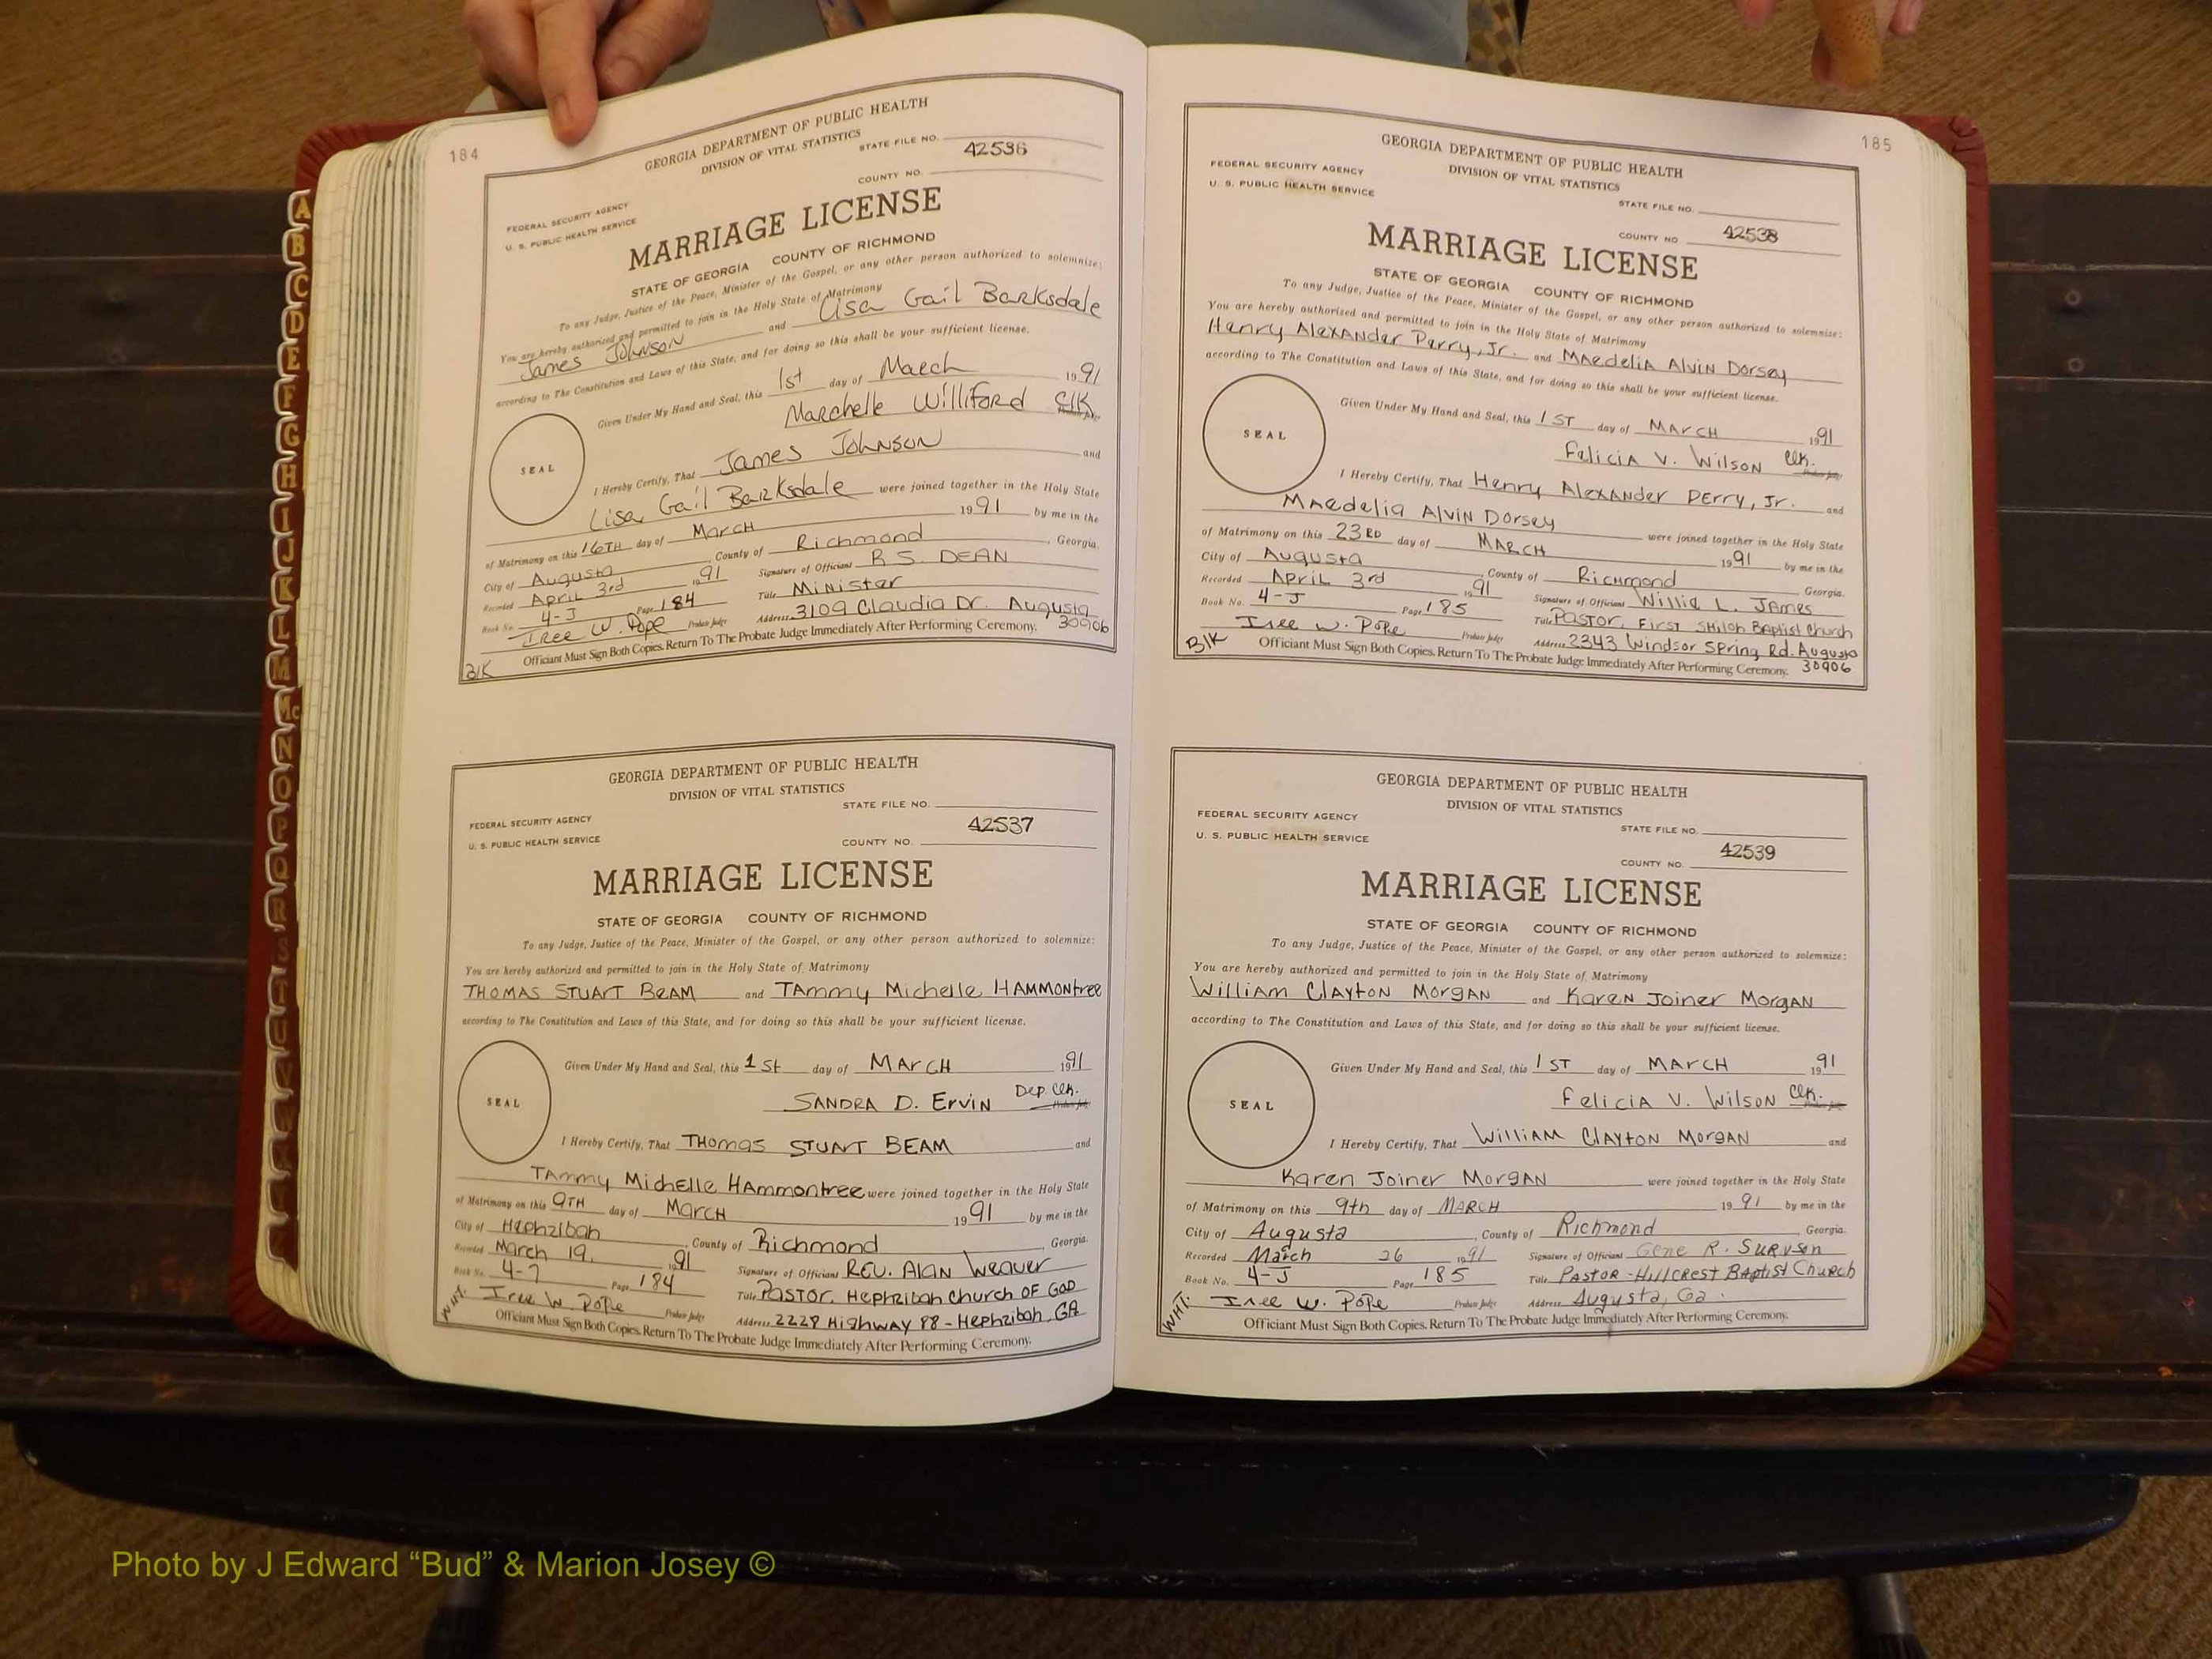 184
GEORGIA DEPARTMENT OF PUBLIC HEALTH
DIVISION OF VITAL STATISTICS
STATE FILE NO.
42536
COUNTY NO.
FEDERAL SECURITY AGENCY
U. S. PUBLIC HEALTH SERVICE
MARRIAGE LICENSE
STATE OF GEORGIA COUNTY OF RICHMOND
To any Judge, Justice of the Peace, Minister of the Gospel, or any other person authorized to solemnize:
You are hereby authorized and permitted to join in the Holy State of Matrimony
James Johnson and Lisa Gail Barksdale
according to The Constitution and Laws of this State, and for doing so this shall be your sufficient license.
Given Under My Hand and Seal, this 1st day of March 1991
Marchelle Williford Clk
SEAL
I Hereby Certify, That James Johnson and
Lisa Gail Barksdale were joined together in the Holy State
of Matrimony on this 16TH day of March 1991 by me in the
City of Augusta, County of Richmond, Georgia.
Recorded April 3rd 1991 Signature of Officiant R.S. DEAN
Book No. 4-J Page 184 Title Minister
Iree W. Pope Probate Judge Address 3109 Claudia Dr. Augusta
30906
Officiant Must Sign Both Copies. Return To The Probate Judge Immediately After Performing Ceremony.
BlK
GEORGIA DEPARTMENT OF PUBLIC HEALTH
DIVISION OF VITAL STATISTICS
STATE FILE NO.
FEDERAL SECURITY AGENCY
42537
U. S. PUBLIC HEALTH SERVICE
COUNTY NO.
MARRIAGE LICENSE
STATE OF GEORGIA COUNTY OF RICHMOND
To any Judge, Justice of the Peace, Minister of the Gospel, or any other person authorized to solemnize:
You are hereby authorized and permitted to join in the Holy State of Matrimony
THOMAS STUART BEAM and TAmmy Michelle HAMMONtree
according to The Constitution and Laws of this State, and for doing so this shall be your sufficient license.
Given Under My Hand and Seal, this 1st day of MARCH 1991
SANDRA D. Ervin Dep Clk.
SEAL
I Hereby Certify, That THomas STUART BEAM and
TAmmy Michelle HAmmontree were joined together in the Holy State
of Matrimony on this 9TH day of MarcH 1991 by me in the
City of Hephzibah, County of Richmond, Georgia.
Recorded March 19, 1991 Signature of Officiant REV. Alan Weaver
Book No. 4-J Page 184 Title Pastor, Hephzibah Church OF GOD
Iree W. Pope Probate Judge Address 2228 Highway 88 - Hephzibah, GA
Officiant Must Sign Both Copies. Return To The Probate Judge Immediately After Performing Ceremony.
WHT.
185
GEORGIA DEPARTMENT OF PUBLIC HEALTH
DIVISION OF VITAL STATISTICS
FEDERAL SECURITY AGENCY
U. S. PUBLIC HEALTH SERVICE
STATE FILE NO.
42538
COUNTY NO.
MARRIAGE LICENSE
STATE OF GEORGIA COUNTY OF RICHMOND
To any Judge, Justice of the Peace, Minister of the Gospel, or any other person authorized to solemnize:
You are hereby authorized and permitted to join in the Holy State of Matrimony
Henry Alexander Perry, Jr. and Maedelia Alvin Dorsey
according to The Constitution and Laws of this State, and for doing so this shall be your sufficient license.
Given Under My Hand and Seal, this 1ST day of MARCH 1991
Felicia V. Wilson Clk.
SEAL
I Hereby Certify, That Henry Alexander Perry, Jr. and
Maedelia Alvin Dorsey were joined together in the Holy State
of Matrimony on this 23RD day of MARCH 1991 by me in the
City of Augusta, County of Richmond, Georgia.
Recorded April 3rd 1991 Signature of Officiant Willie L. James
Book No. 4-J Page 185 Title Pastor, First Shiloh Baptist Church
Iree W. Pope Probate Judge Address 2343 Windsor Spring Rd. Augusta
30906
Officiant Must Sign Both Copies. Return To The Probate Judge Immediately After Performing Ceremony.
BlK
GEORGIA DEPARTMENT OF PUBLIC HEALTH
DIVISION OF VITAL STATISTICS
FEDERAL SECURITY AGENCY
STATE FILE NO.
U. S. PUBLIC HEALTH SERVICE
42539
COUNTY NO.
MARRIAGE LICENSE
STATE OF GEORGIA COUNTY OF RICHMOND
To any Judge, Justice of the Peace, Minister of the Gospel, or any other person authorized to solemnize:
You are hereby authorized and permitted to join in the Holy State of Matrimony
William Clayton Morgan and Karen Joiner Morgan
according to The Constitution and Laws of this State, and for doing so this shall be your sufficient license.
Given Under My Hand and Seal, this 1ST day of MARCH 1991
Felicia V. Wilson Clk.
SEAL
I Hereby Certify, That William Clayton Morgan and
Karen Joiner Morgan were joined together in the Holy State
of Matrimony on this 9th day of MARCH 1991 by me in the
City of Augusta, County of Richmond, Georgia.
Recorded March 26 1991 Signature of Officiant Gene R.
Book No. 4-J Page 185 Title Pastor - Hillcrest Baptist Church
Iree W. Pope Probate Judge Address Augusta, Ga.
Officiant Must Sign Both Copies. Return To The Probate Judge Immediately After Performing Ceremony.
WHT.
A
B
C
D
E
F
G
H
I
J
K
L
M
Mc
N
O
P
Q
R
S
T
U
V
Photo by J Edward “Bud” & Marion Josey ©